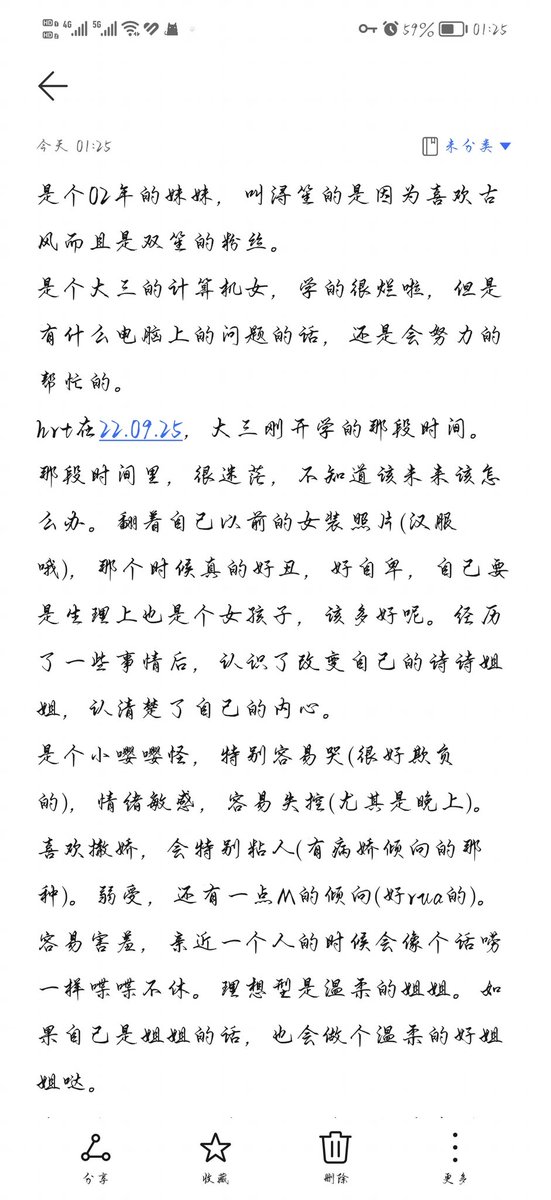 4G 5G 59% 01:25
今天 01:25 未分类
是个02年的妹妹，叫浔笙的是因为喜欢古
风而且是双笙的粉丝。
是个大三的计算机女，学的很烂啦，但是
有什么电脑上的问题的话，还是会努力的
帮忙的。
hrt在22.09.25，大三刚开学的那段时间。
那段时间里，很迷茫，不知道该未来该怎
么办。翻着自己以前的女装照片(汉服
哦)，那个时候真的好丑，好自卑，自己要
是生理上也是个女孩子，该多好呢。经历
了一些事情后，认识了改变自己的诗诗姐
姐，认清楚了自己的内心。
是个小嘤嘤怪，特别容易哭(很好欺负
的)，情绪敏感，容易失控(尤其是晚上)。
喜欢撒娇，会特别粘人(有病娇倾向的那
种)。弱受，还有一点M的倾向(好rua的)。
容易害羞，亲近一个人的时候会像个话唠
一样喋喋不休。理想型是温柔的姐姐。如
果自己是姐姐的话，也会做个温柔的好姐
姐哒。
分享 收藏 删除 更多